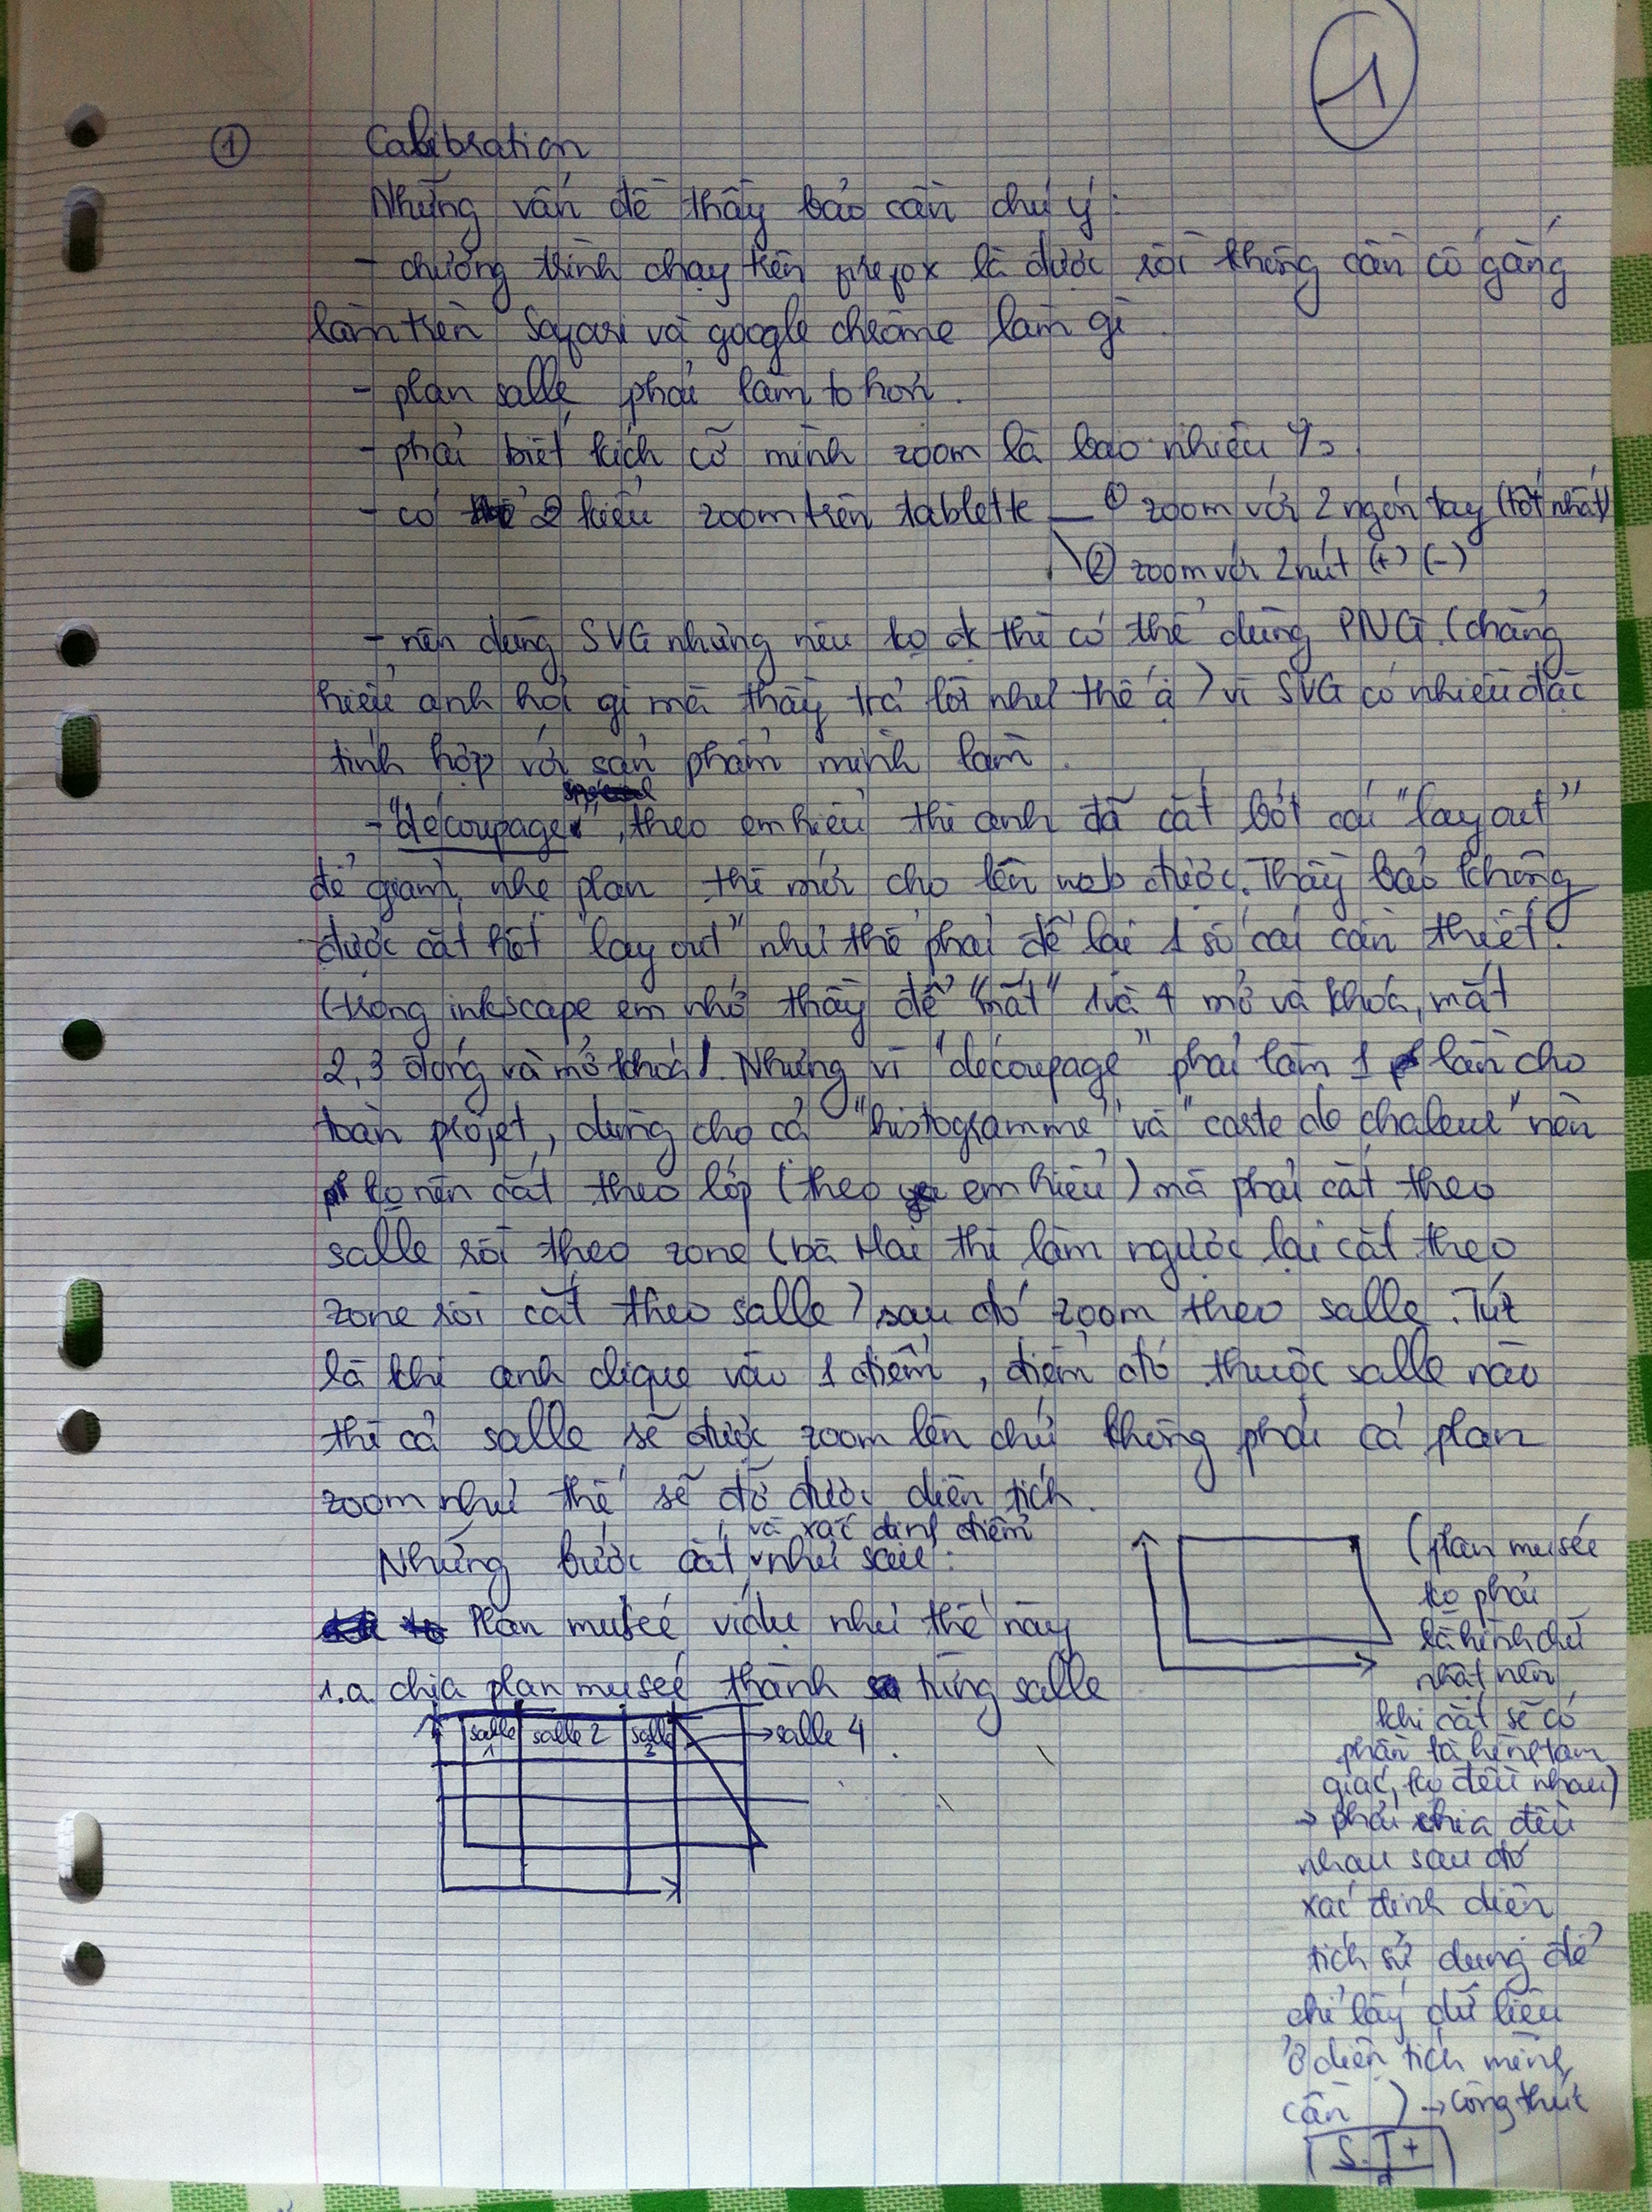 1
① Calibration
Những vấn đề thầy bảo cần chú ý:
- chương trình chạy trên firefox là được rồi không cần cố gắng
làm trên Safari và google chrome làm gì.
- plan salle phải làm to hơn.
- phải biết kích cỡ mình zoom là bao nhiêu %.
- có 2 kiểu zoom trên tablette — ① zoom với 2 ngón tay (tốt nhất)
② zoom với 2 nút (+) (-)
- nên dùng SVG nhưng nếu ko đc thì có thể dùng PNG. (chẳng
hiểu anh hỏi gì mà thầy trả lời như thế ạ) vì SVG có nhiều đặc
tính hợp với sản phẩm mình làm.
- "découpage", theo em hiểu thì anh đã cắt bớt cái "layout"
để giảm nhẹ plan thì mới cho lên web được. Thầy bảo không
được cắt hết "layout" như thế phải để lại 1 số cái cần thiết.
(trong inkscape em nhớ thầy để "mắt" 1 và 4 mở và khoá, mắt
2, 3 đóng và mở khoá). Nhưng vì "découpage" phải làm 1 lần cho
toàn projet, dùng cho cả "histogramme" và "carte de chaleur" nên
ko nên cắt theo lớp (theo em hiểu) mà phải cắt theo
salle rồi theo zone (bà Mai thì làm ngược lại cắt theo
zone rồi cắt theo salle) sau đó zoom theo salle. Tức
là khi anh clique vào 1 điểm, điểm đó thuộc salle nào
thì cả salle sẽ được zoom lên chứ không phải cả plan
zoom như thế sẽ đỡ được diện tích.
và xác định điểm
Những bước cắt như sau:
Plan museé ví dụ như thế này
1.a. chia plan museé thành từng salle
salle 1 salle 2 salle 3 → salle 4
(plan museé
ko phải
là hình chữ
nhật nên
khi cắt sẽ có
phần là hình tam
giác, ko đều nhau)
→ phải chia đều
nhau sau đó
xác định diện
tích sử dụng để
chỉ lấy dữ liệu
ở diện tích mình
cần ) → công thức
S.T +